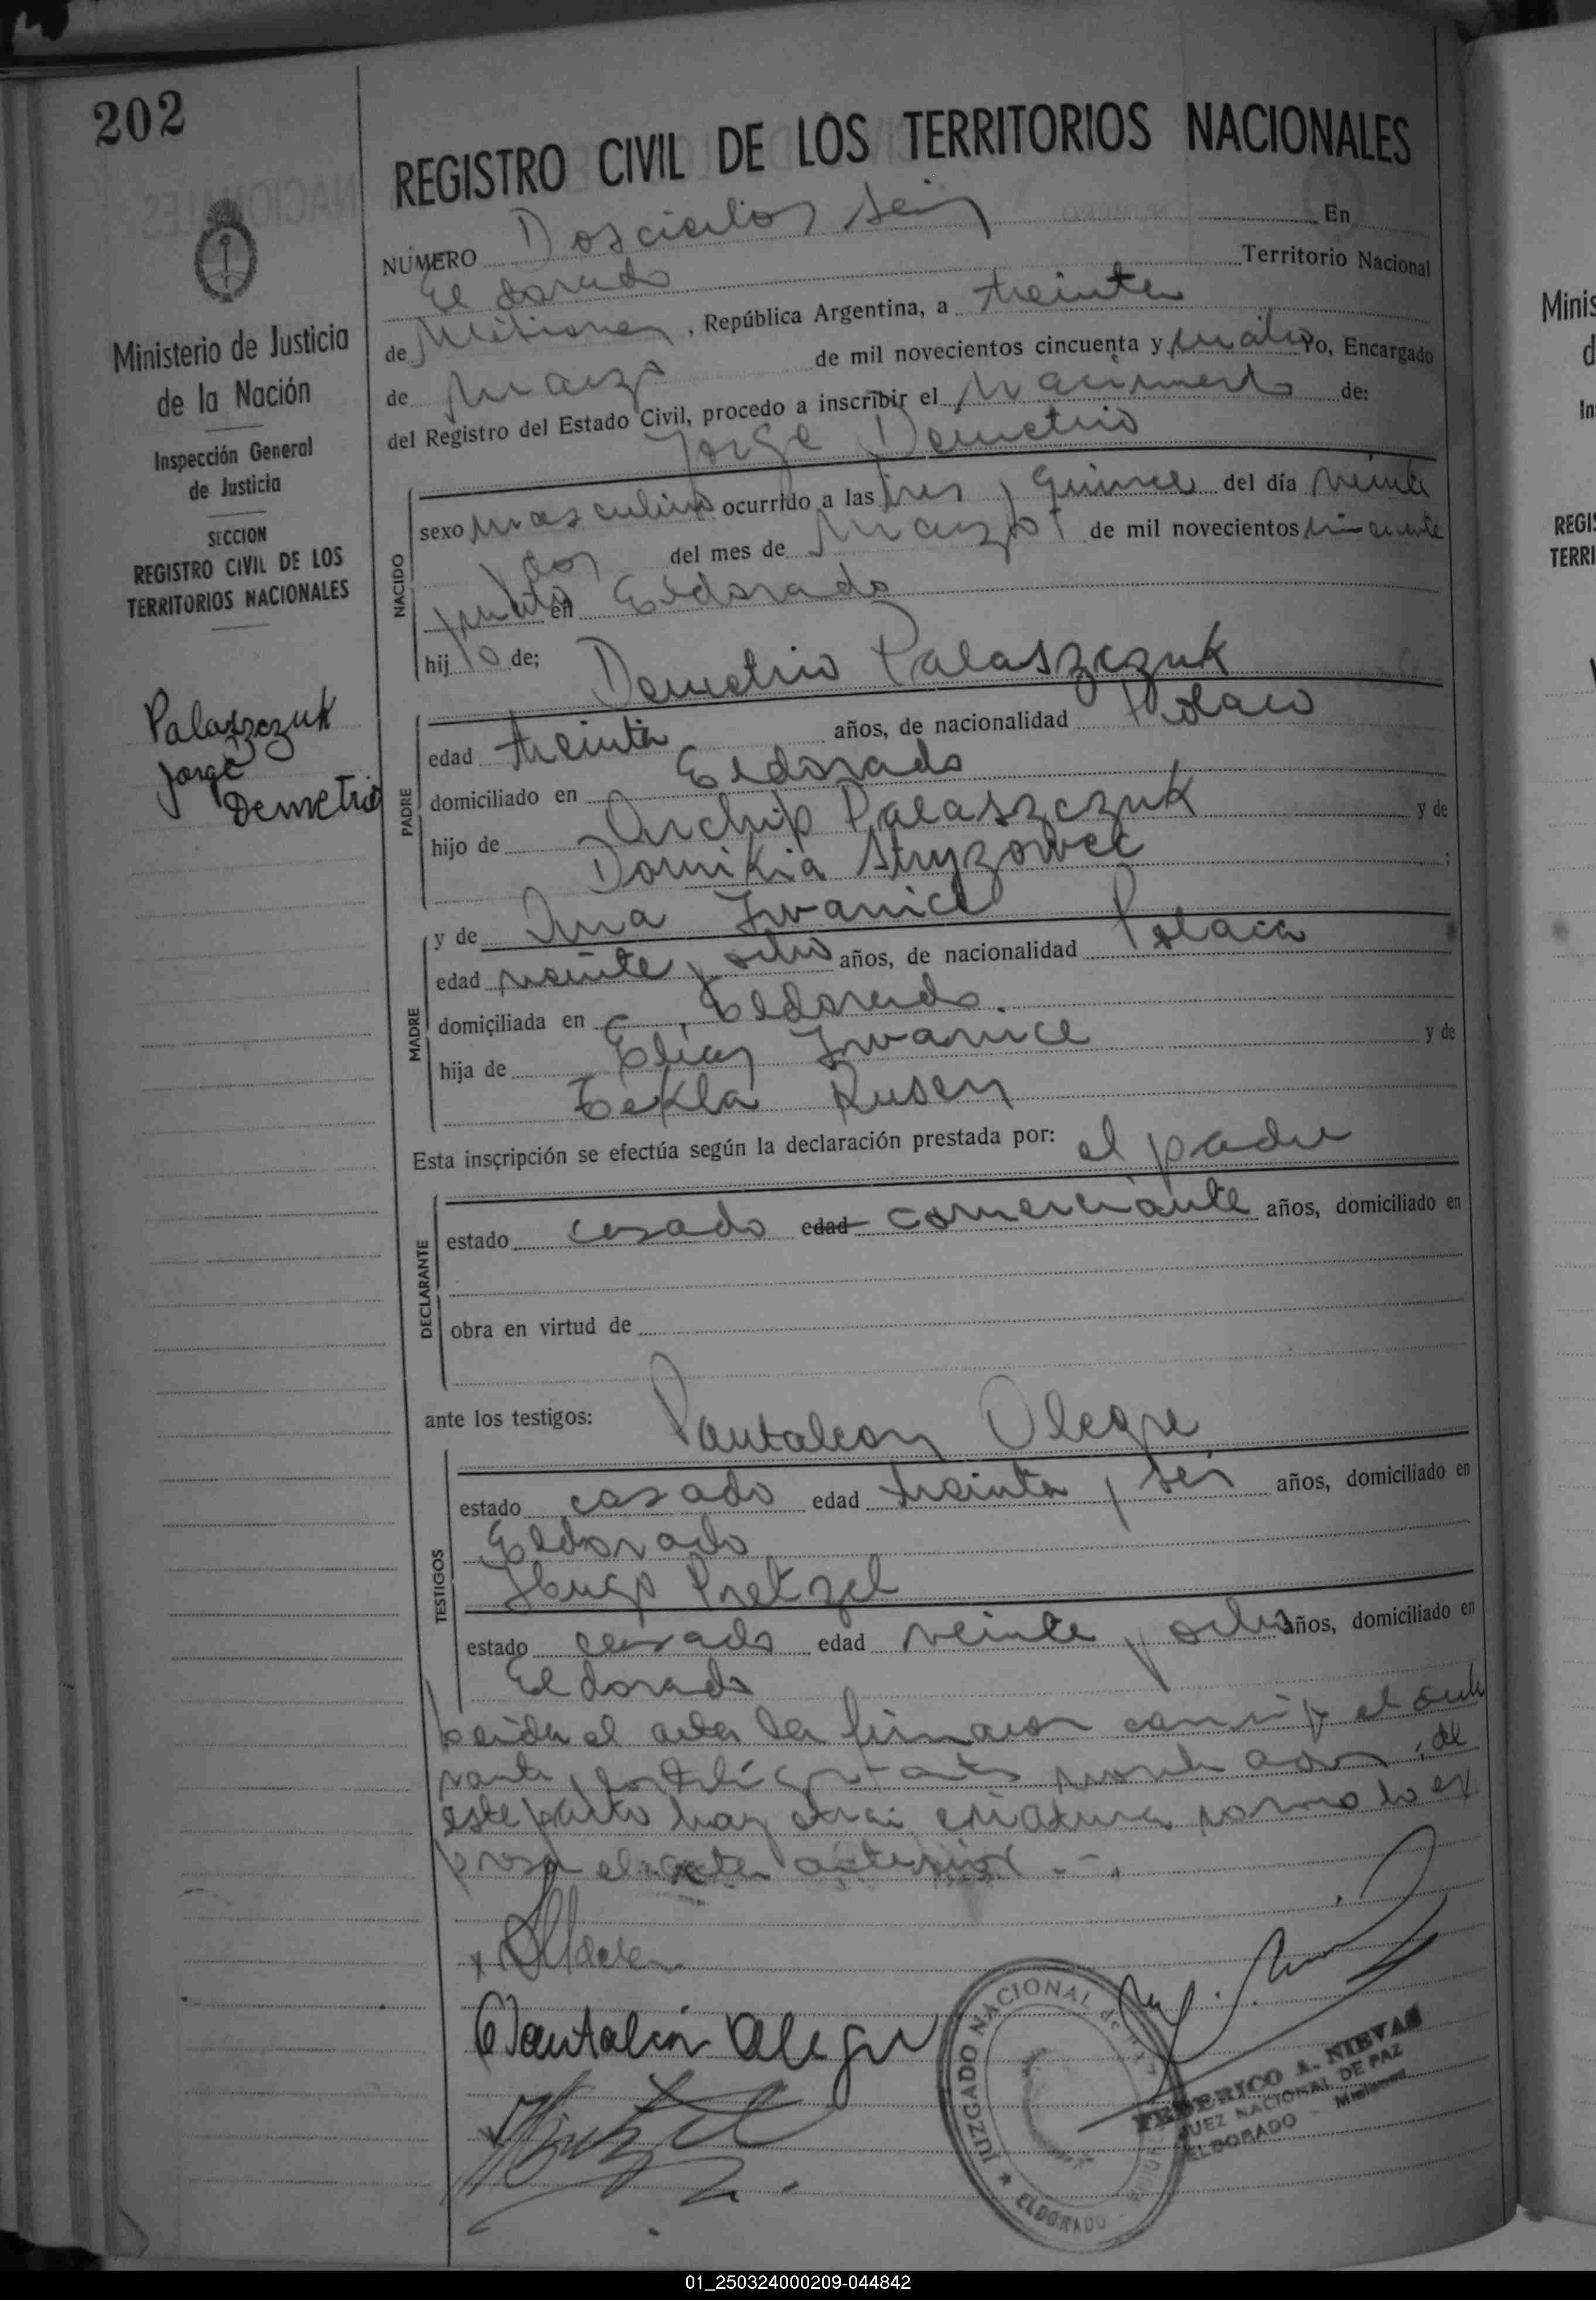 202
REGISTRO CIVIL DE LOS TERRITORIOS NACIONALES
Ministerio de Justicia
de la Nación
Inspección General
de Justicia
SECCION
REGISTRO CIVIL DE LOS
TERRITORIOS NACIONALES
Palaszczuk
Jorge
Demetrio
NÚMERO Doscientos seis En
El dorado Territorio Nacional
de Misiones, República Argentina, a treinta
de marzo de mil novecientos cincuenta y cuatro Yo, Encargado
del Registro del Estado Civil, procedo a inscribir el nacimiento de:
Jorge Demetrio
NACIDO
sexo masculino ocurrido a las tres y quince del día veinte
y dos del mes de marzo de mil novecientos cincuenta
en Eldorado
hijo de; Demetrio Palaszczuk
PADRE
edad treinta años, de nacionalidad Polaco
domiciliado en Eldorado
hijo de Archip Palaszczuk y de
Domikia Stryzowec;
MADRE
y de Ana Iwanice
edad veinte y ocho años, de nacionalidad Polaca
domiciliada en Eldorado.
hija de Elias Iwanice y de
Tekla Rusen
Esta inscripción se efectúa según la declaración prestada por: el padre
DECLARANTE
estado casado edad comerciante años, domiciliado en
obra en virtud de
ante los testigos: Pantaleon Alegre
TESTIGOS
estado casado edad treinta y seis años, domiciliado en
Eldorado
Hugo Pretzel
estado casado edad veinte y ocho años, domiciliado en
El dorado
Leida el acta la firmaron conmigo el
; de
este parto hay otra criatura como lo ex
presa el acta anterior
Pantaleón Alegre
JUZGADO NACIONAL de
ELDORADO
FEDERICO A. NIEVAS
JUEZ NACIONAL DE PAZ
ELDORADO - Misiones
Minis
d
In
REGIS
TERRI
01_250324000209-044842